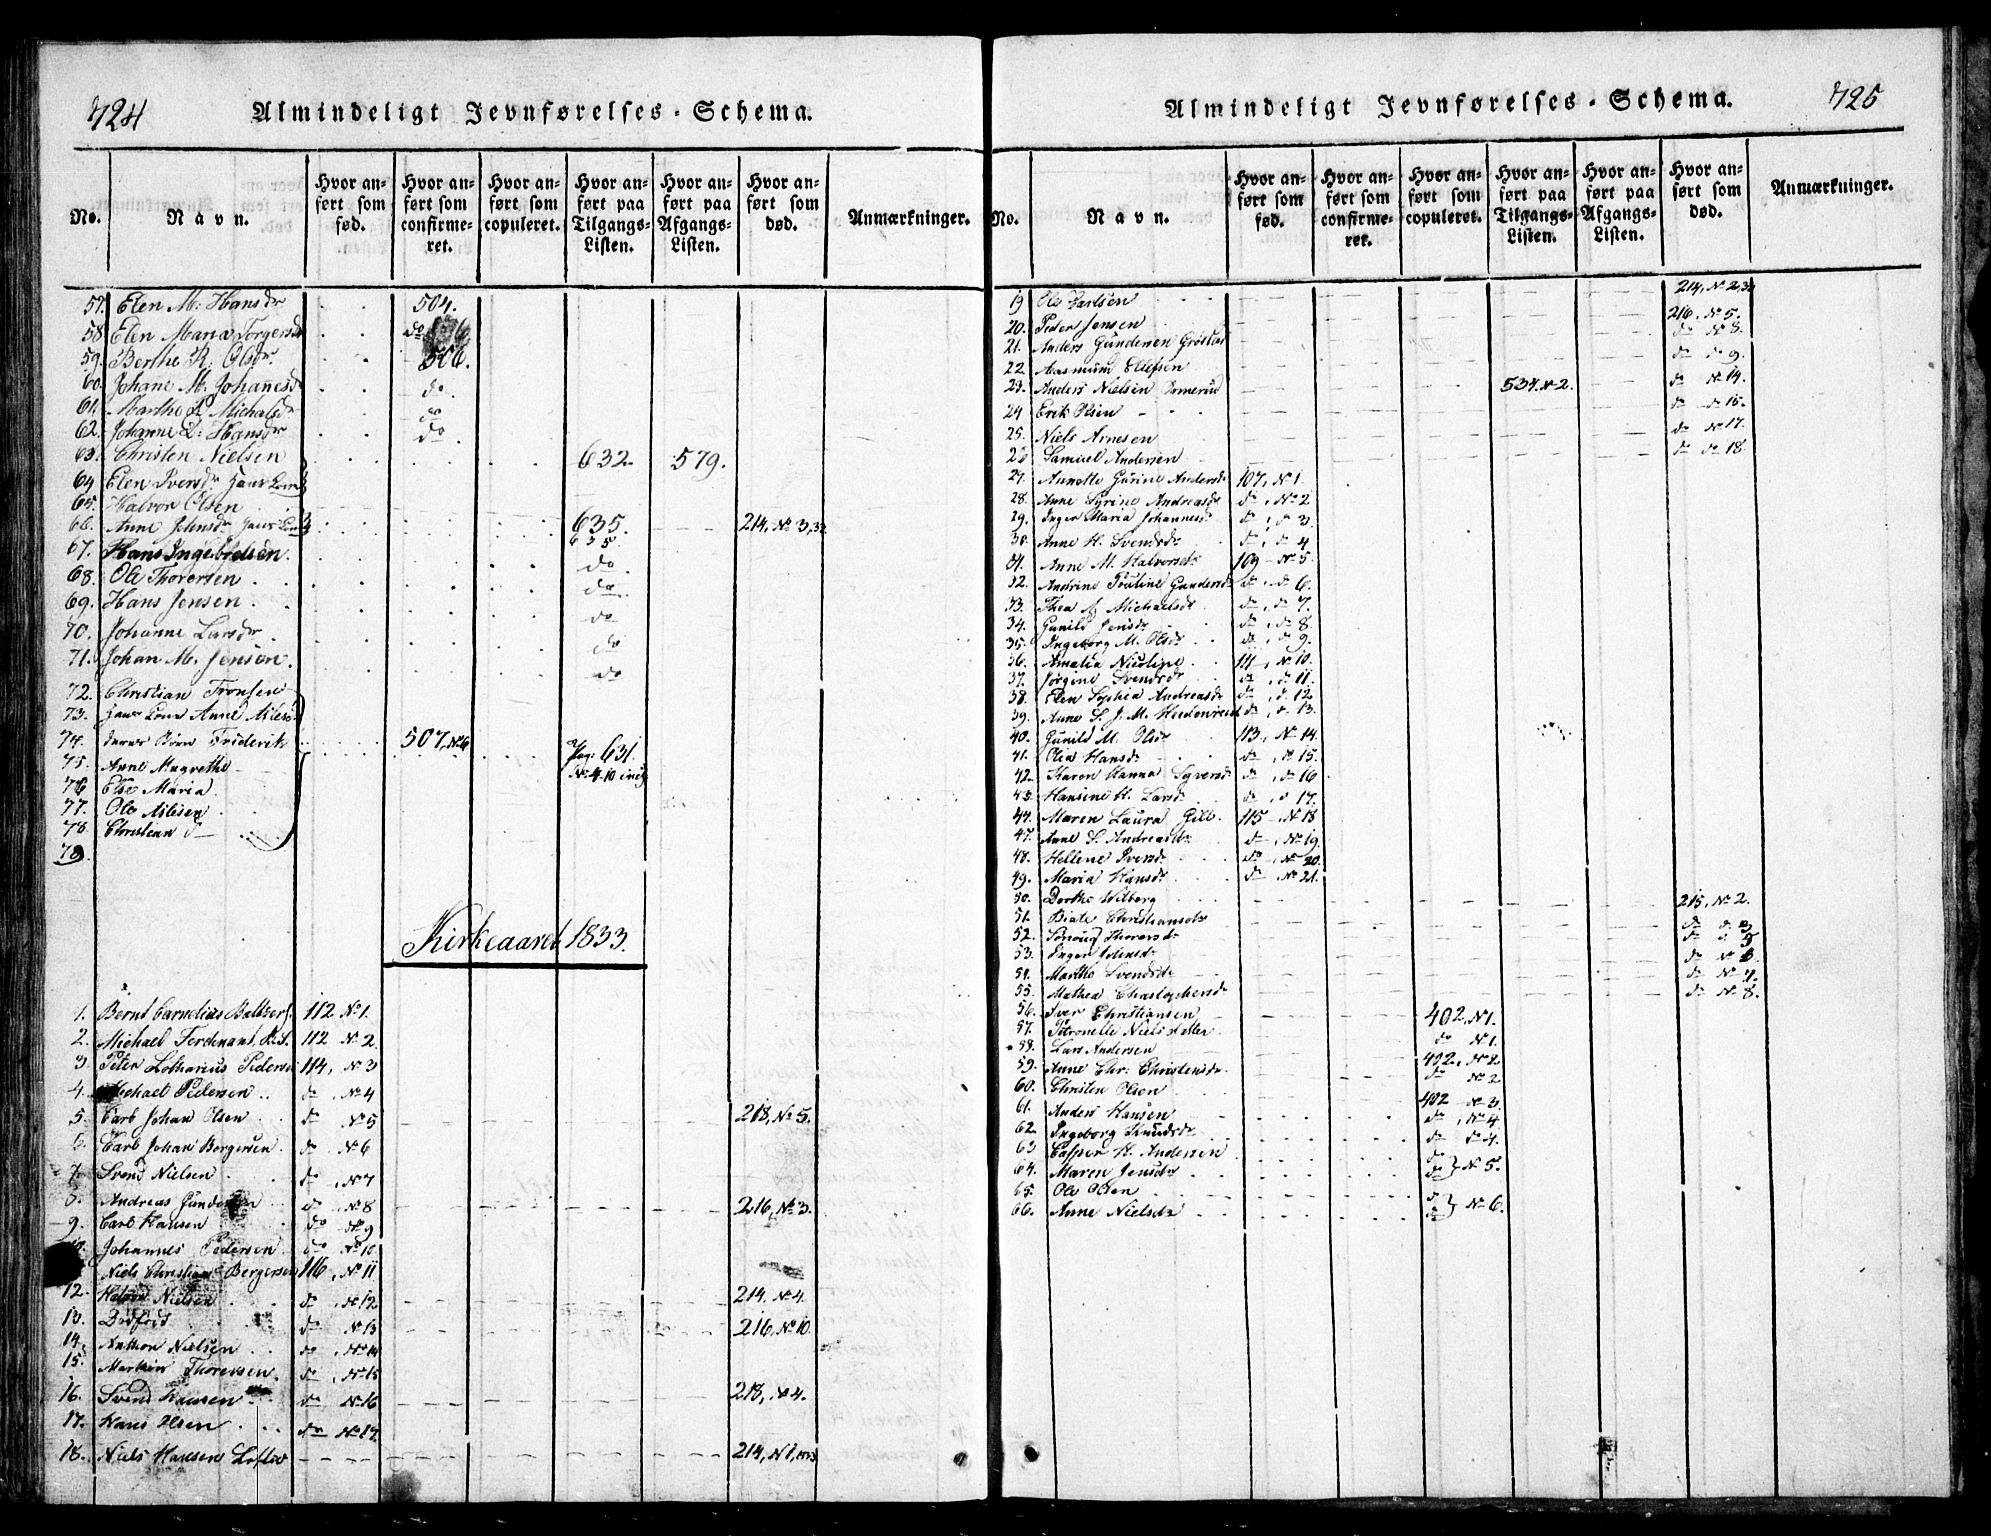 724
Almindeligt Jevnførelses-Schema.
No.
Navn.
Hvor anført som fød.
Hvor anført som confirmeret.
Hvor anført som copuleret.
Hvor anført paa Tilgangs-Listen.
Hvor anført paa Afgangs-Listen.
Hvor anført som død.
Anmærkninger.
57. Elen M. Hansdr 504.
58 Elen Maria Torgersdr do
59. Berthe R. Olsdr 506.
60. Johane M. Johanesdr do
61. Marthe Michalsdr do
62. Johanne L. Hansdr do
63. Christen Nielsen 632. 579.
64 Elen Iversdr hans Kone
65. Halvor Olsen
66. Anne Johnsdr hans Kone 635. 214, No 3, 32
67. Hans Ingebretsen. 635
68. Ole Thorersen do
69. Hans Jensen do
70. Johanne Larsdr do
71. Johan M. Jensen. do
72. Christian Tronsen do
73. hans Kone Anne Nilsdr
74. deres Børn Friderik 507, No 6 Pag: 631.
75. Anne Magrethe No 4-10 incl
76 Else Maria
77. Ole Nilsen
78. Christian do
79.
Kirkeaaret 1833.
1. Bernt Cornelius Baltzers. 112 No 1.
2. Michael Ferdinant, 112 No 2.
3. Peter Lotharius Peders 114, No 3
4. Michael Pedersen do No 4
5. Carl Johan Olsen do No 5 218, No 5.
6. Carl Johan Borgersen do No 6
7. Svend Nielsen do No 7
8. Andreas Gundersen do No 8 216, No 3.
9. Carl Hansen do No 9
10. Johannes Pedersen do No 10
Niels Christian Bergersen 116, No 11
12. Halvor Nielsen do, No 12 214. No 4
13. Dødfød do No 13 216, No 10
14. Anthon Nielsen do, No 14
15. Martin Thorersen. do, No 15
16. Svend Hansen do No 16 218, No 4.
17. Hans Olsen do No 17.
18. Niels Hansen 214, N 1,
725
Almindeligt Jevnførelses-Schema.
No.
Navn.
Hvor anført som fød.
Hvor anført som confirmeret.
Hvor anført som copuleret.
Hvor anført paa Tilgangs-Listen.
Hvor anført paa Afgangs-Listen.
Hvor anført som død.
Anmærkninger.
19 Ole Carlsen 214, No 2, 32
20. Peder Jensen 216, No 5.
21. Anders Gundersen do No 8.
22 Rasmund Ellefsen do do 9.
23. Anders Nielsen 534. No 2. do No 14.
24 Erik Olsen do do 15.
25. Niels Arnesen do No 17.
26 Samuel Andersen do do 18.
27. Annette Gurine Andersdr 107, No 1.
28. Anne Syrine Andreasdr do, No 2
29. Inger Maria Johannesdr do, do 3.
30. Anne H. Svendsdr do, do 4
31. Anne M. Halvorsdr 109 No 5.
32. Andrine Pauline Gundersdr do, do 6.
33. Thea Michaelsdr do, do 7.
34. Gunild Jensdr do, do 8
35. Ingeborg M. Olsdr do, do 9.
36. Amalia Nicoline 111, No 10.
37. Jørgine Svendsdr do, do 11.
38. Elen Sophia Andreasdr do, do 12
39. Anne S. J. M. Heidenreich do, do 13.
40. Gunild M. Olsdr 113, No 14.
41. Olea Hansdr do, do 15.
42. Karen Hanna Syversdr do, do 16
43. Hansine H. Larsdr do, do 17.
44. Maren Laura Gill. 115 No 18
47. Anne S. Andreasdr do, No 19.
48. Hellene Iversdr do, No 20.
49. Maria Hansdr do, No 21.
50. Dorthe Wilberg 215, No 2.
51. Biate Christiansdr do do 3
52. Thorersdr do do 5
53. Inger do No 6
54. Marthe Svendsdr do No 7.
55. Mathea Christophersdr do No 8.
56. Iver Christiansen 402, No 1.
57. Petronelle Nielsdatter do No 1.
58. Lars Andersen 402, No 2
59. Anne Chr: Christensdr do No 2
60. Christen Olsen 402 No 3.
61. Anders Hansen do, No 4
62. Ingeborg Knudsdr do do 4.
63 Casper H. Andersen do
64. Maren Jensdr do } No 5.
65. Ole Olsen do
66. Anne Nielsdr do } No 6.